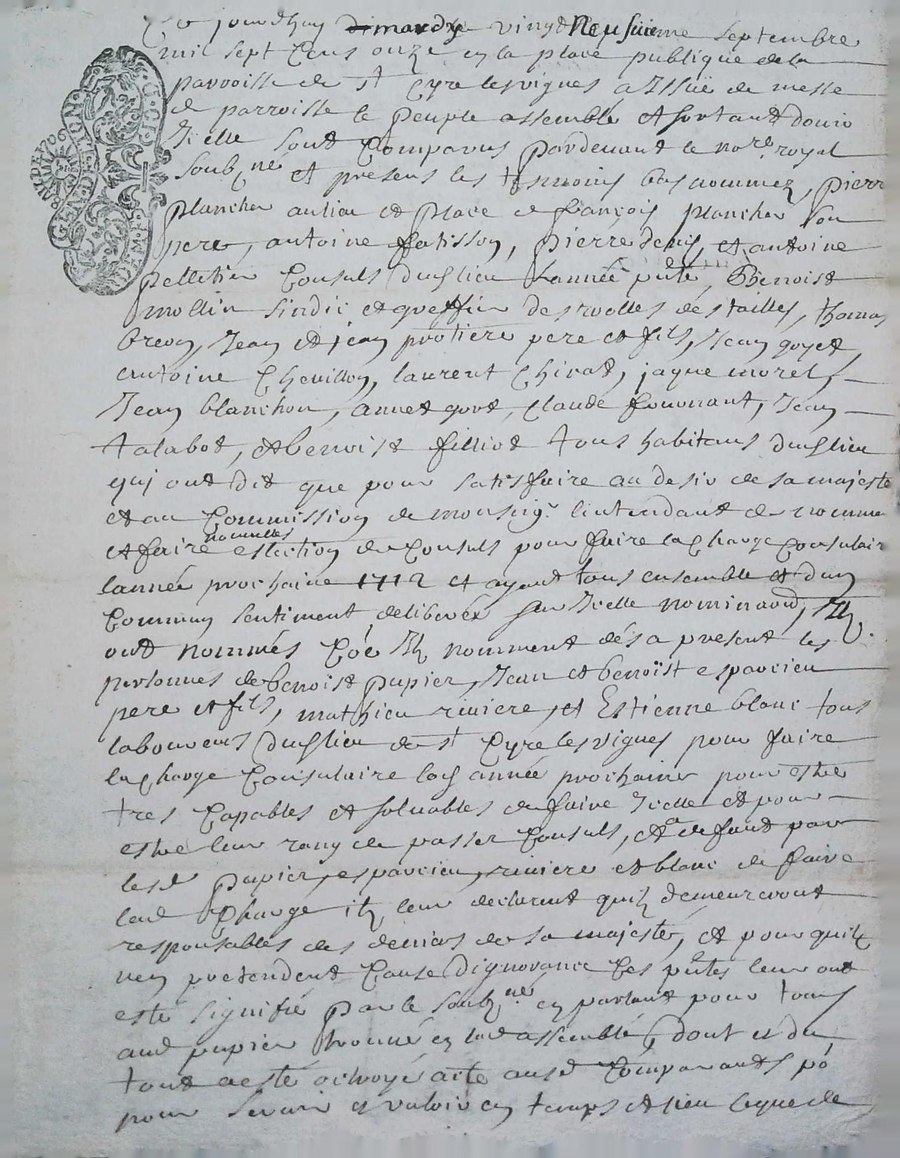 Ce jourdhuy dimardy vingt Neufvieme septembre
mil sept Cens onze en la place publique de la
parroisse de st Cyre les vignes a Issüe de messe
de parroisse le peuple assemblé et sortant douir
Icelle sont Comparus pardevant le nore royal
soubzne et presens les tesmoins bas nommez, pierre
planchon au lieu et place de françois planchon son
pere, antoine fatisson, pierre denis, et antoine
pelletier Consuls dudlieu Lannée pnte, Benoist
mollin sindic et greffier des roolles des tailles, thomas
breon, Jean et jean protiere pere et fils, Jean goyet,
antoine Chevillon, laurent Chirat, jaque morel,
Jean blanchon, annet gort, Claude fouonant, Jean
talabot, et benoist filliot tous habitans dudlieu
qui ont dit que pour satisfaire au desir de sa majesté
et au Commission de monseigr lintendant de nommer
et faire nouvelles eslection de Consuls pour faire la Charge Consulaire
lannée prochaine 1712 et ayant tous ensemble et dun
Commun sentiment deliberés sur Icelle nominaõn, Ilz
ont nommés Coê Ilz nomment dés a present les
personnes de benoist papier, Jean et benoïst espercieu
pere et fils, mathieu riviere, et Estienne blanc tous
laboureurs dudlieu de st Cyre les vignes pour faire
la Charge Consulaire lad année prochaine pour estre
tres Capables et solvables de faire Icelle et pour
estre leur rang de passer Consuls, et a defaut par
lesd papier, espercieu, riviere et blanc de faire
lad Charge ilz leur declarent quilz demeureront
responsables des deniers de sa majesté, et pour quilz
nen pretendent Cause dignorance Ces pntes leur ont
esté signifié par le soubzne en parlant pour tous
aud papier trouvé en lad assemblé, dont et du
tout a esté octroyé acte ausd Comparants po
pour servir et valoir en temps et lieu Ceque de